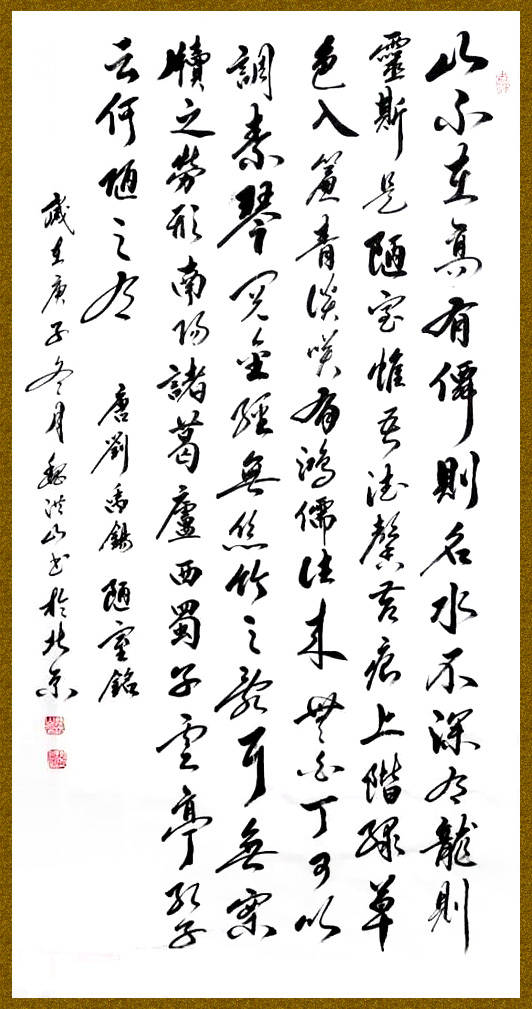 山不在高有僊則名水不深有龍則
靈斯是陋室惟吾德馨苔痕上階綠草
色入簾青談笑有鴻儒往來無白丁可以
調素琴閱金經無絲竹之亂耳無案
牘之勞形南陽諸葛廬西蜀子雲亭孔子
云何陋之有 唐劉禹錫 陋室銘
歲在庚子冬月魏洪山书於北京